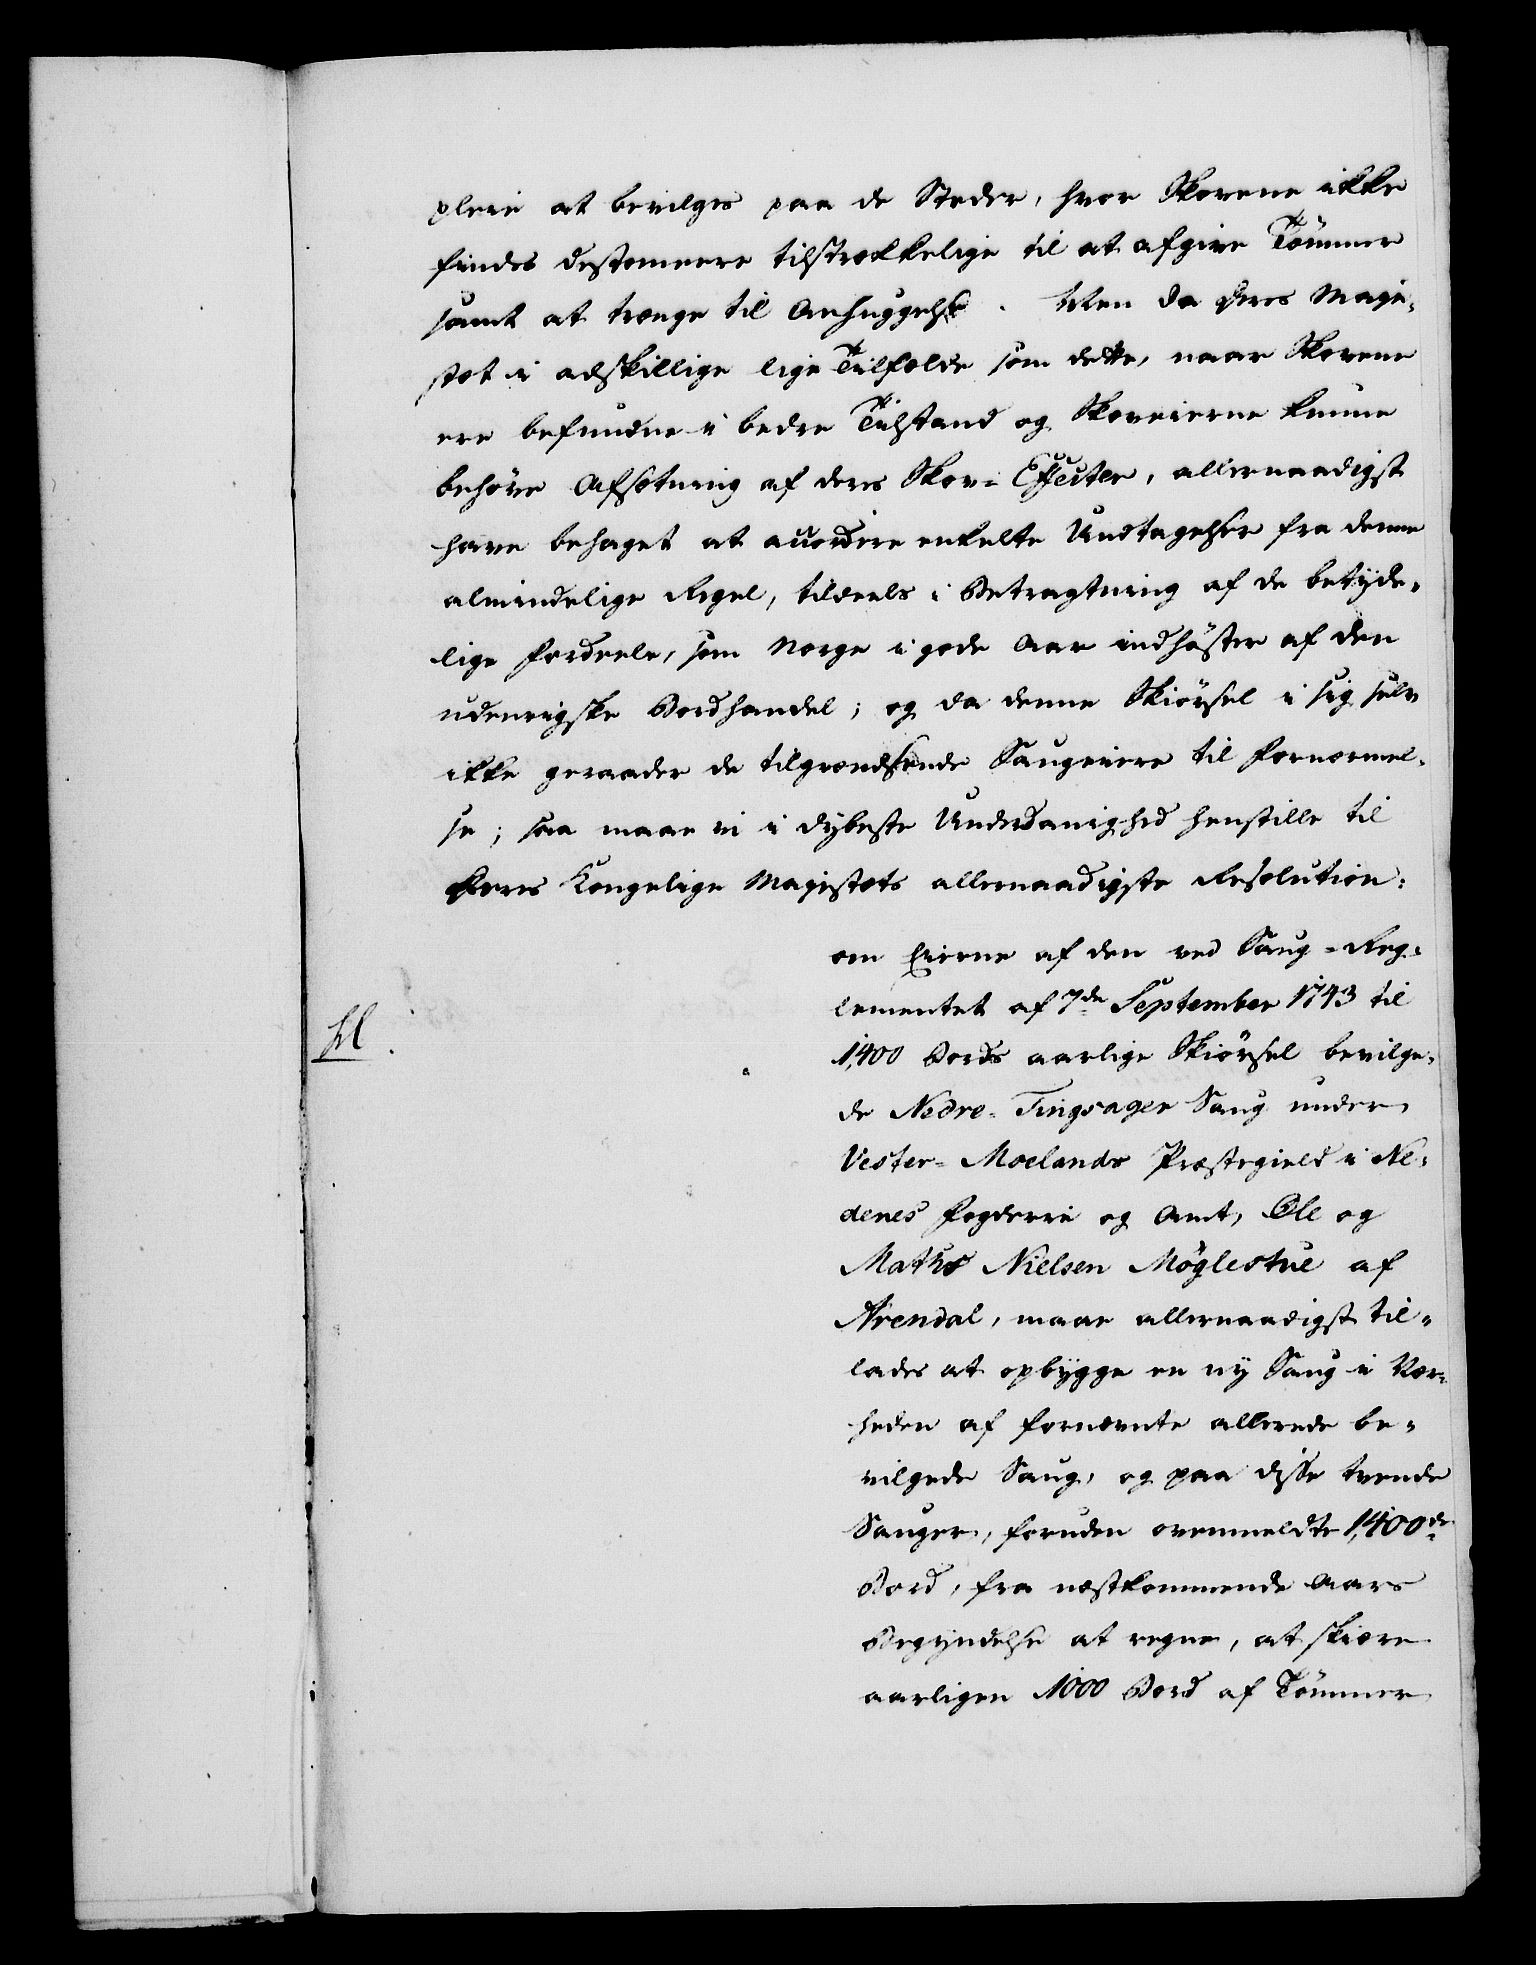 pleie at bevilges paa de Steder, hvor Skovene ikke
findes destomeere tilstrækkelige til at afgive Tømmer
samt at trænge til Ophuggelse. Men da Deres Maje-
stæt i adskillige lige Tilfælde som dette, naar Skovene
ere befundne i bedre Tilstand og Skoveierne kunne
behøve Afsætning af deres Skov-Effecter, allernaadigst
have behaget at accordere enkelte Undtagelser fra denne
almindelige Regel, tildeels i Betragtning af de betyde-
lige Fordeele, som Norge i gode Aar indhøster af den
udenrigske Bordhandel; og da denne Skiørsel i sig selv
ikke geraader de tilgrændsende Saugeiere til Fornærmel-
se; saa maae vi i dybeste Underdanighed henstille til
Deres Kongelige Majestæts allernaadigste Resolution:
om Eierne af den ved Saug-Reg-
lementet af 7de September 1743 til
1,400 Bords aarlige Skiørsel bevilge-
de Nedre-Tingsager Saug under
Vester-Moelands Præstegield i Ne-
denes Fogderie og Amt, Ole og
Mathis Nielsen Møglestue af
Arendal, maae allernaadigst til-
lades at opbygge en ny Saug i Nær-
heden af fornævnte allerede be-
vilgede Saug, og paa disse tvende
Sauger, foruden ovenmeldte 1,400de
Bord, fra næstkommende Aars
Begyndelse at regne, at skiære
aarligen 1000 Bord af Tømmer